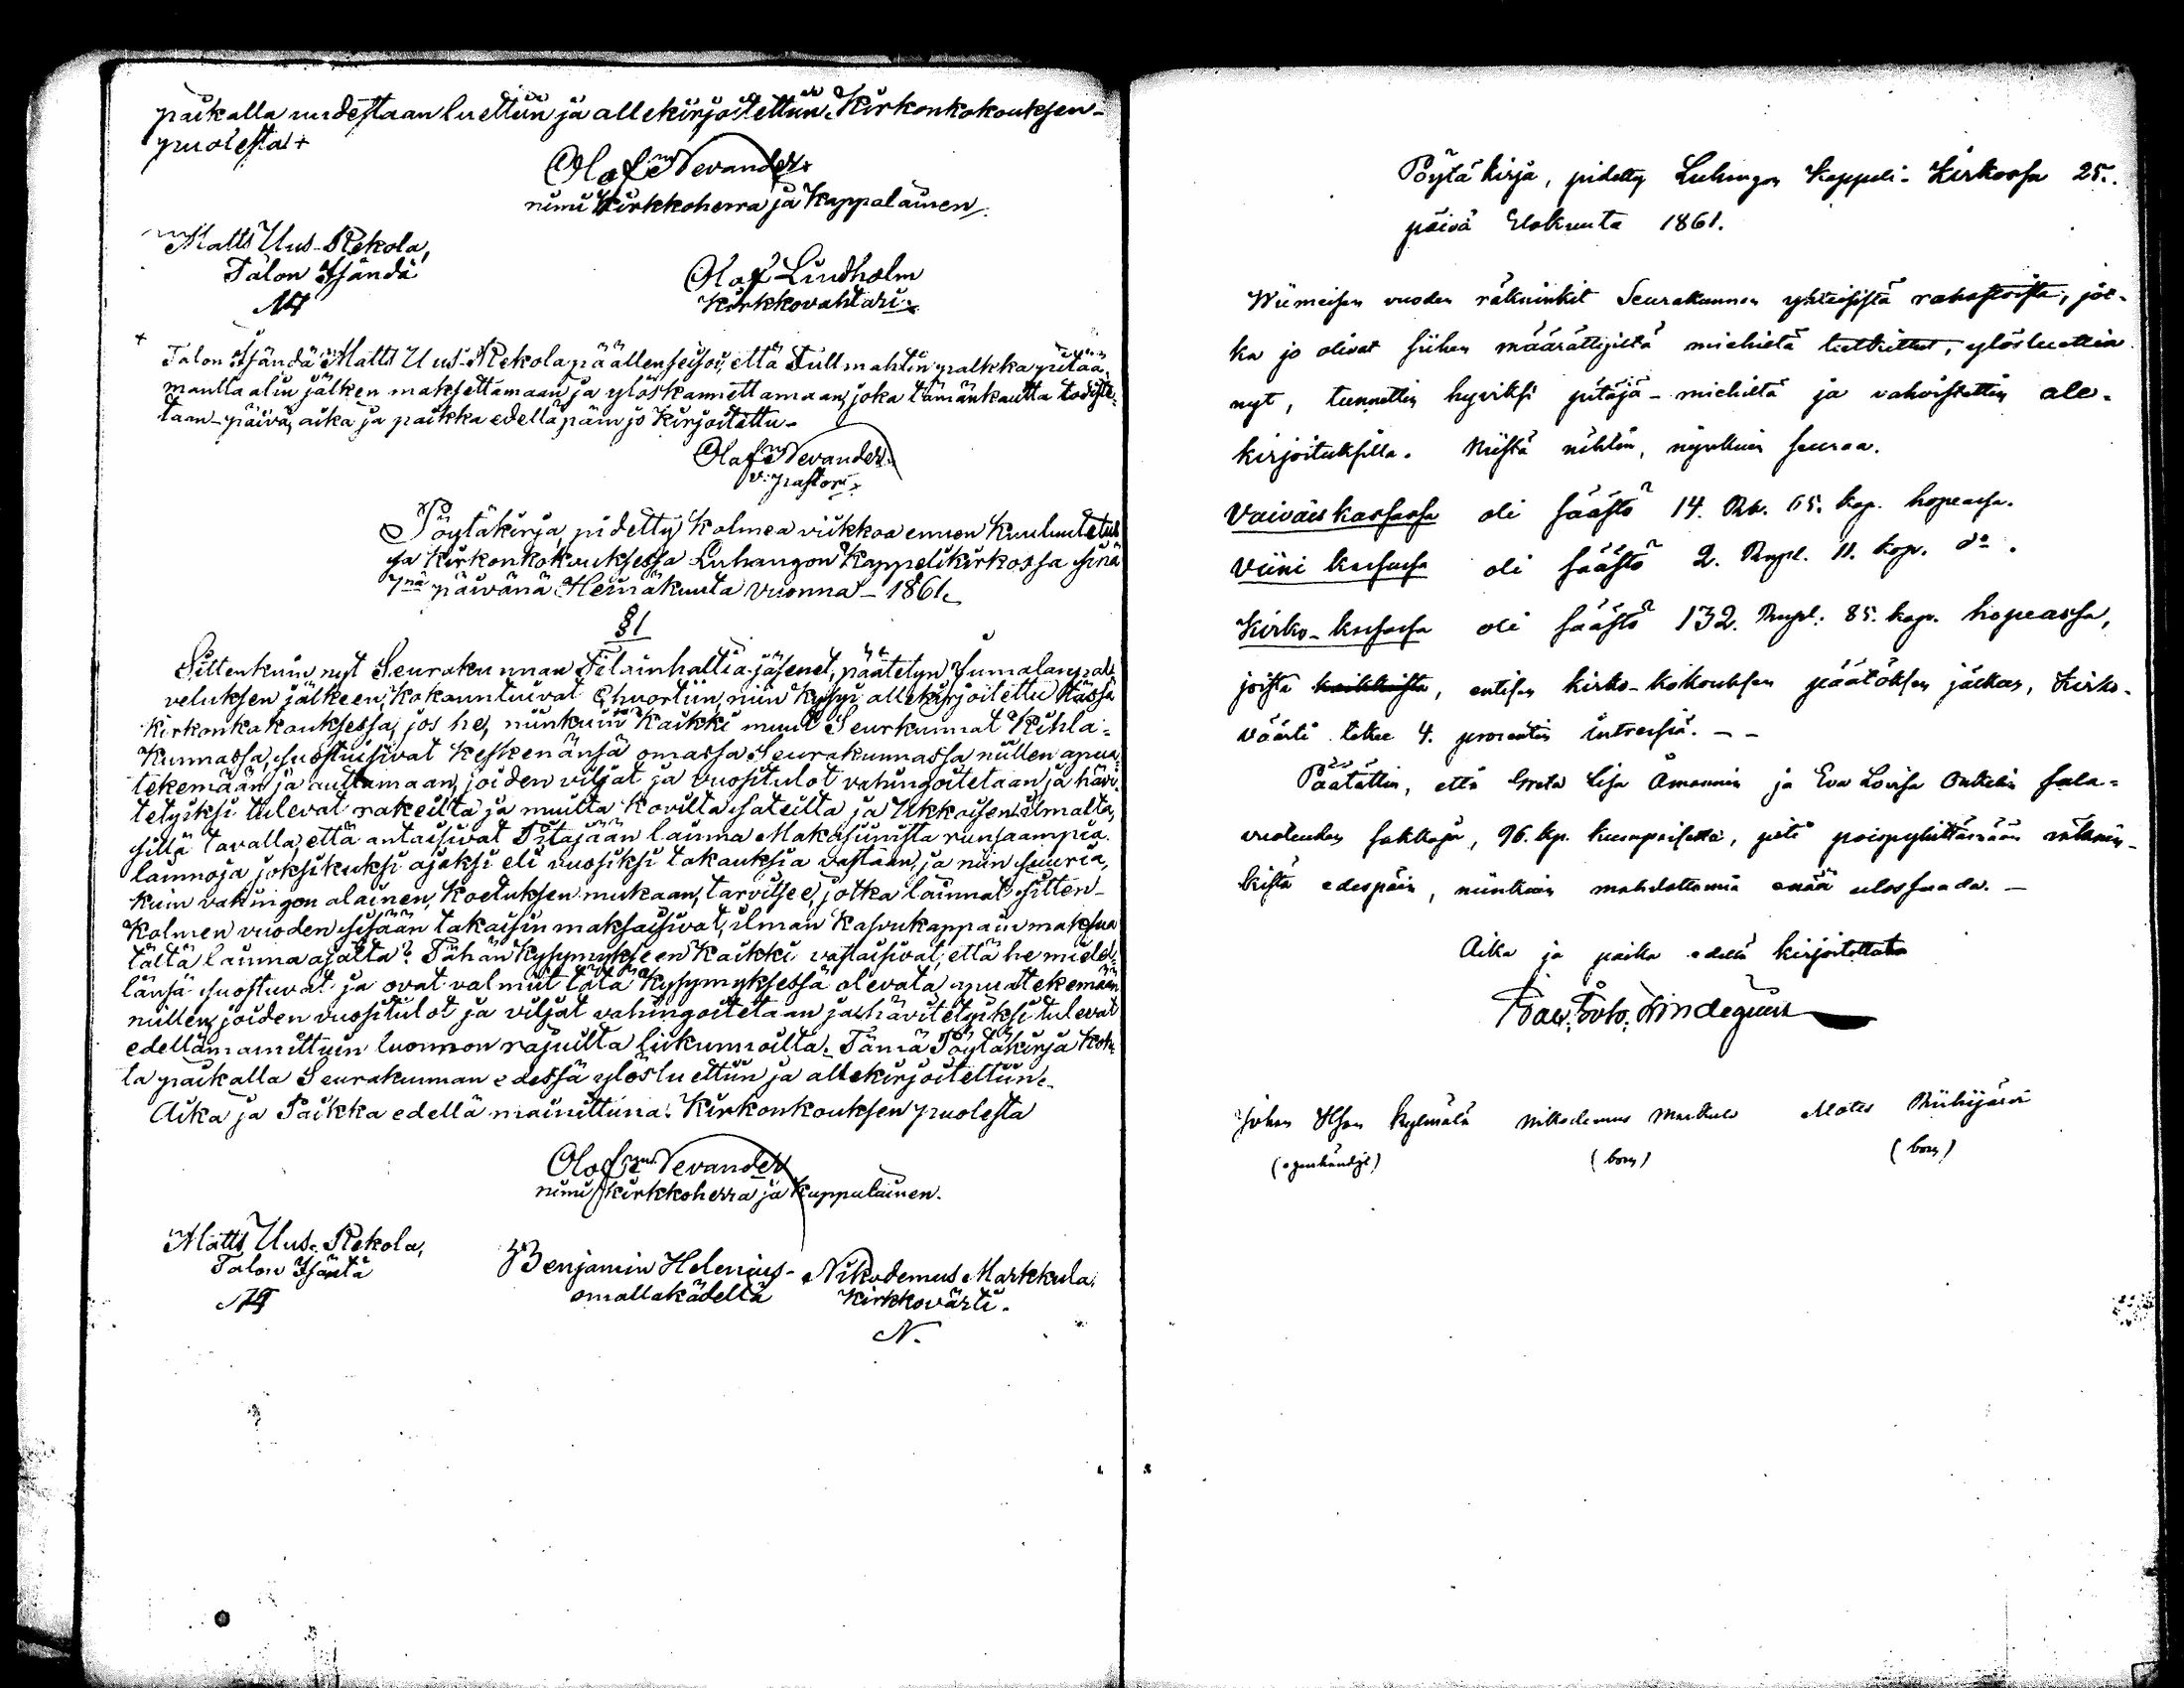 paikalla uudestaan luettiin ja allekirjoitettiin. Kirkonkokouksen-
puolesta +
Olof Nevander
nimi Kirkkoherra ja Kappalainen.
Matts Uus-Rekola,
Talon Isändä
Olof Lindholm
Kirkkovahtari
+ Talon Isändä Matts Uus-Rekola päällenseisoi, että Tullmahtin palkka pitää
manttaalin jälken maksettamaan ja ylöskannettamaan, joka tämänkautta todiste-
taan-päivä, aika ja paikka edelläpäin jo Kirjoitettu-
Olof Nevander.
v. pastori.
Pöytäkirja pidetty Kolmea viikkoa ennen Kuulutetus
sa Kirkonkokouksessa Luhangon Kappelikirkossa sinä
7nä päivänä Heinäkuuta vuonna - 1861.
§ 1
Sittenkuin nyt Seurakunnan Tilainhaltia-jäsenet, päätetyn Jumalanpal-
veluksen jälkeen, Kokountuivat Chuortiin, niin Kysyi allekirjoitettu tässä
Kirkonkokouksessa, jos he, niinkuin Kaikki muut Seurkunnat Kihla-
Kunnassa, suostuisivat Keskenänsä omassa Seurakunnassa niitten apua
tekemään ja auttamaan, joiden viljat ja vuositulot vahingoitetaan ja hävi-
tetyiksi tulevat rakeilta ja muilta Kovilta sateilta ja Ukkoisen ilmalta,
sillä tavalla, että antaisivat Pitajään laina Makasiinista runsaampia
lainoja joksikuksi ajaksi eli vuosiksi takauksia vastaan, ja niin suuria,
kuin vahingon alainen, Koetuksen mukaan, tarvitsee, jotka lainat sitten-
Kolmen vuoden sisään takaisin maksaisivat, ilman Kasvukappain maksua
tältä laina ajalta? Tähän Kysymykseen Kaikki vastaisivat, että he mielel-
länsä suostuvat ja ovat valmiit tätä Kysymyksessä olevata apua tekemään
niillen, joiden vuositulot ja viljat vahingoitetaan ja hävitetyiksi tulevat
edellämainittuin luonnon rajuilta liikunnoilta. Tämä Pöytäkirja Koh-
ta paikalla Seurakunnan edessä ylösluettiin ja allekirjoitettiin.
Aika ja Paikka edellä mainittuna. Kirkonkouksen puolesta
Olof Nevander
nimi Kirkkoherra ja Kappalainen.
Matts Uus-Rekola,
Talon Isäntä
Benjamin Helenius-
omallakädellä
Nikodemus Markkula,
Kirkkovärti.
N.
Pöytäkirja, pidetty Luhangon Kappeli-Kirkossa 25.
päivä Elokuuta 1861.
Wiimeisen vuoden räkningit Seurakunnan yhteisistä rahastoista, jot-
ka jo olivat siihen määrätyiltä miehiltä tutkittut, ylösluettiin
nyt, tunnettiin hyviksi pitäjä-miehiltä ja vahvistettiin ale-
kirjoituksilla. Niistä nähtiin, niinkuin seuraa.
Vaiväiskassassa oli säästö 14. Rub. 65. kop. hopeassa.
Viini kassassa oli säästö 2. Rupl. 11. kop. do.
Kirko-kassassa oli säästö 132. Rupl. 85. kop. hopeassa,
joista kaikkista, entisen kirko-kokouksen päätöksen jälken, Kirko-
väärti tekee 4. prosentin intressiä. - -
Päätättin, että Greta Lisa Åmannin ja Eva Lovisa sala-
vuoteuden sakkoja, 96. kp. kummaisetta, piti poispyhittämään räknin-
kistä edespäin, niinkuin mahdottomia enää ulossaada. -
Aika ja paikka edellä kirjoitettuna
Johan Olson Kylmälä
(egenhändigt)
Nikodemus Markula
(bom)
Mats Riihijärvi
(bom)